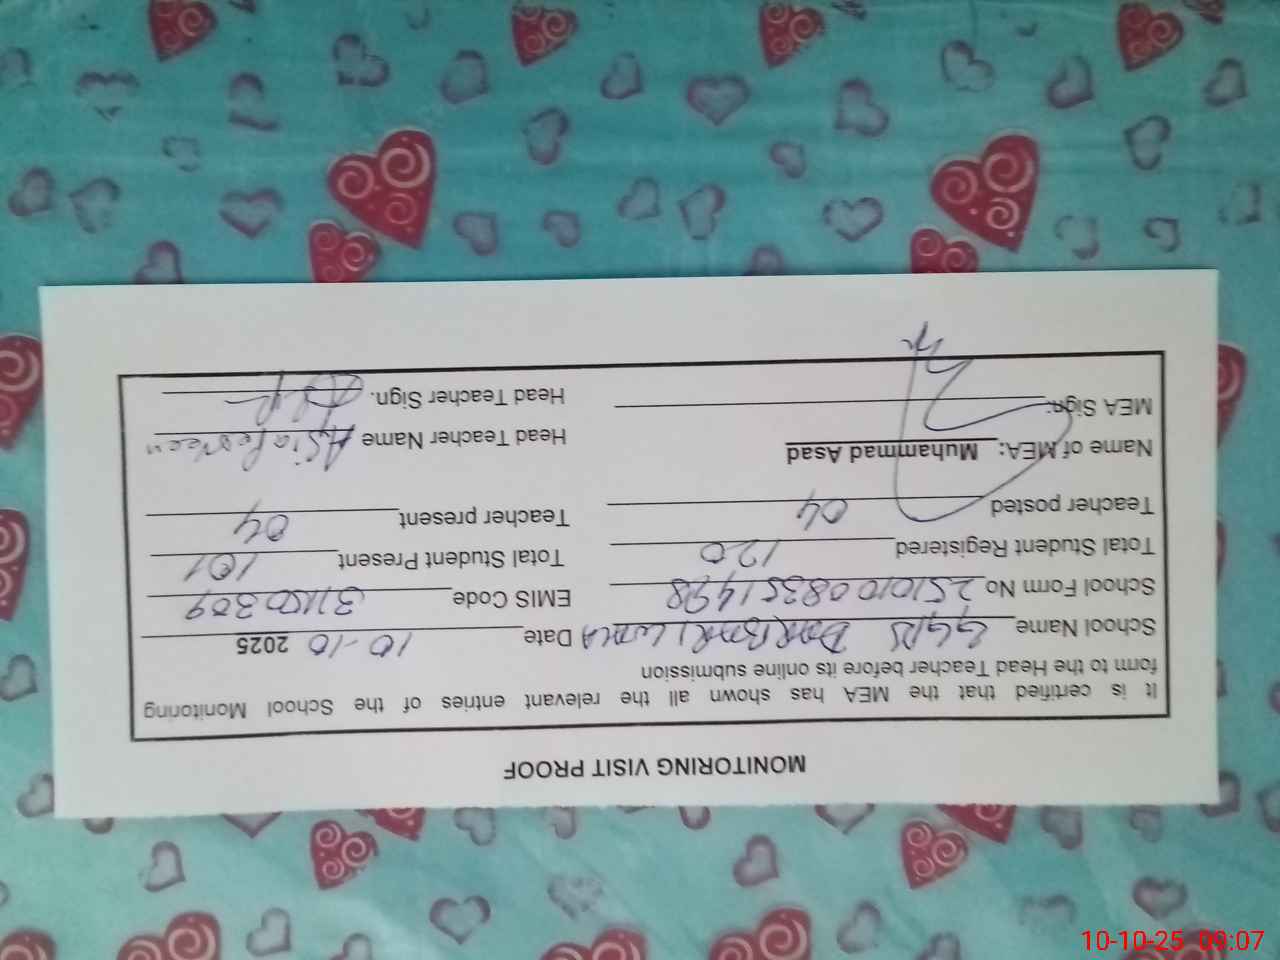 MONITORING VISIT PROOF
It is certified that the MEA has shown all the relevant entries of the School Monitoring
form to the Head Teacher before its online submission
School Name GGPS DARBARI WALA Date 10-10 2025
School Form No 25101008351498 EMIS Code 31150309
Total Student Registered 120 Total Student Present 101
Teacher posted 04 Teacher present 04
Name of MEA: Muhammad Asad Head Teacher Name Asia Perveen
MEA Sign: Head Teacher Sign.
10-10-25 09:07